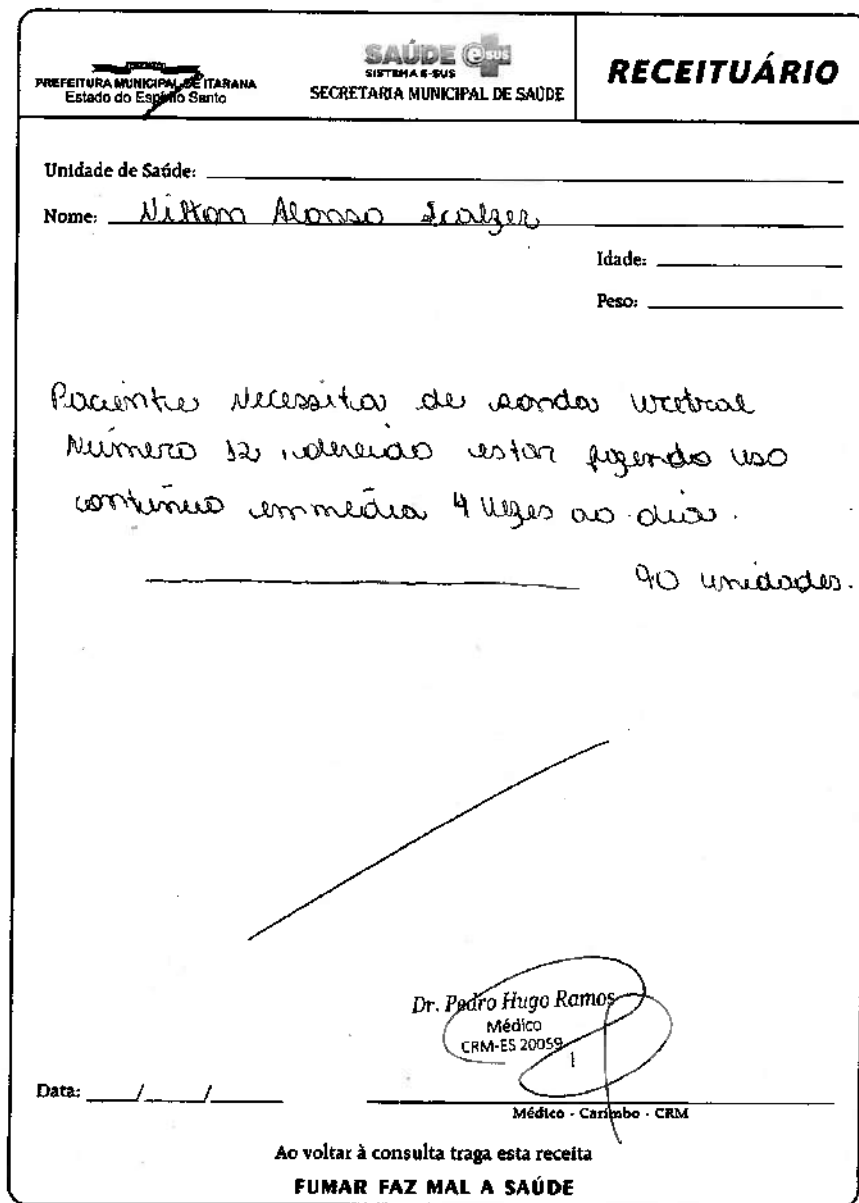 PREFEITURA MUNICIPAL DE ITARANA
Estado do Espírito Santo
SAÚDE e sus
SISTEMA E-SUS
SECRETARIA MUNICIPAL DE SAÚDE
RECEITUÁRIO
Unidade de Saúde:
Nome: Nilton Alonso Scalzer
Idade:
Peso:
Paciente Necessita de sonda uretral
Número 12, devido estar fazendo uso
contínuo em média 4 vezes ao dia.
90 unidades.
Dr. Pedro Hugo Ramos
Médico
CRM-ES 20059
Data: / /
Médico - Carimbo - CRM
Ao voltar à consulta traga esta receita
FUMAR FAZ MAL A SAÚDE